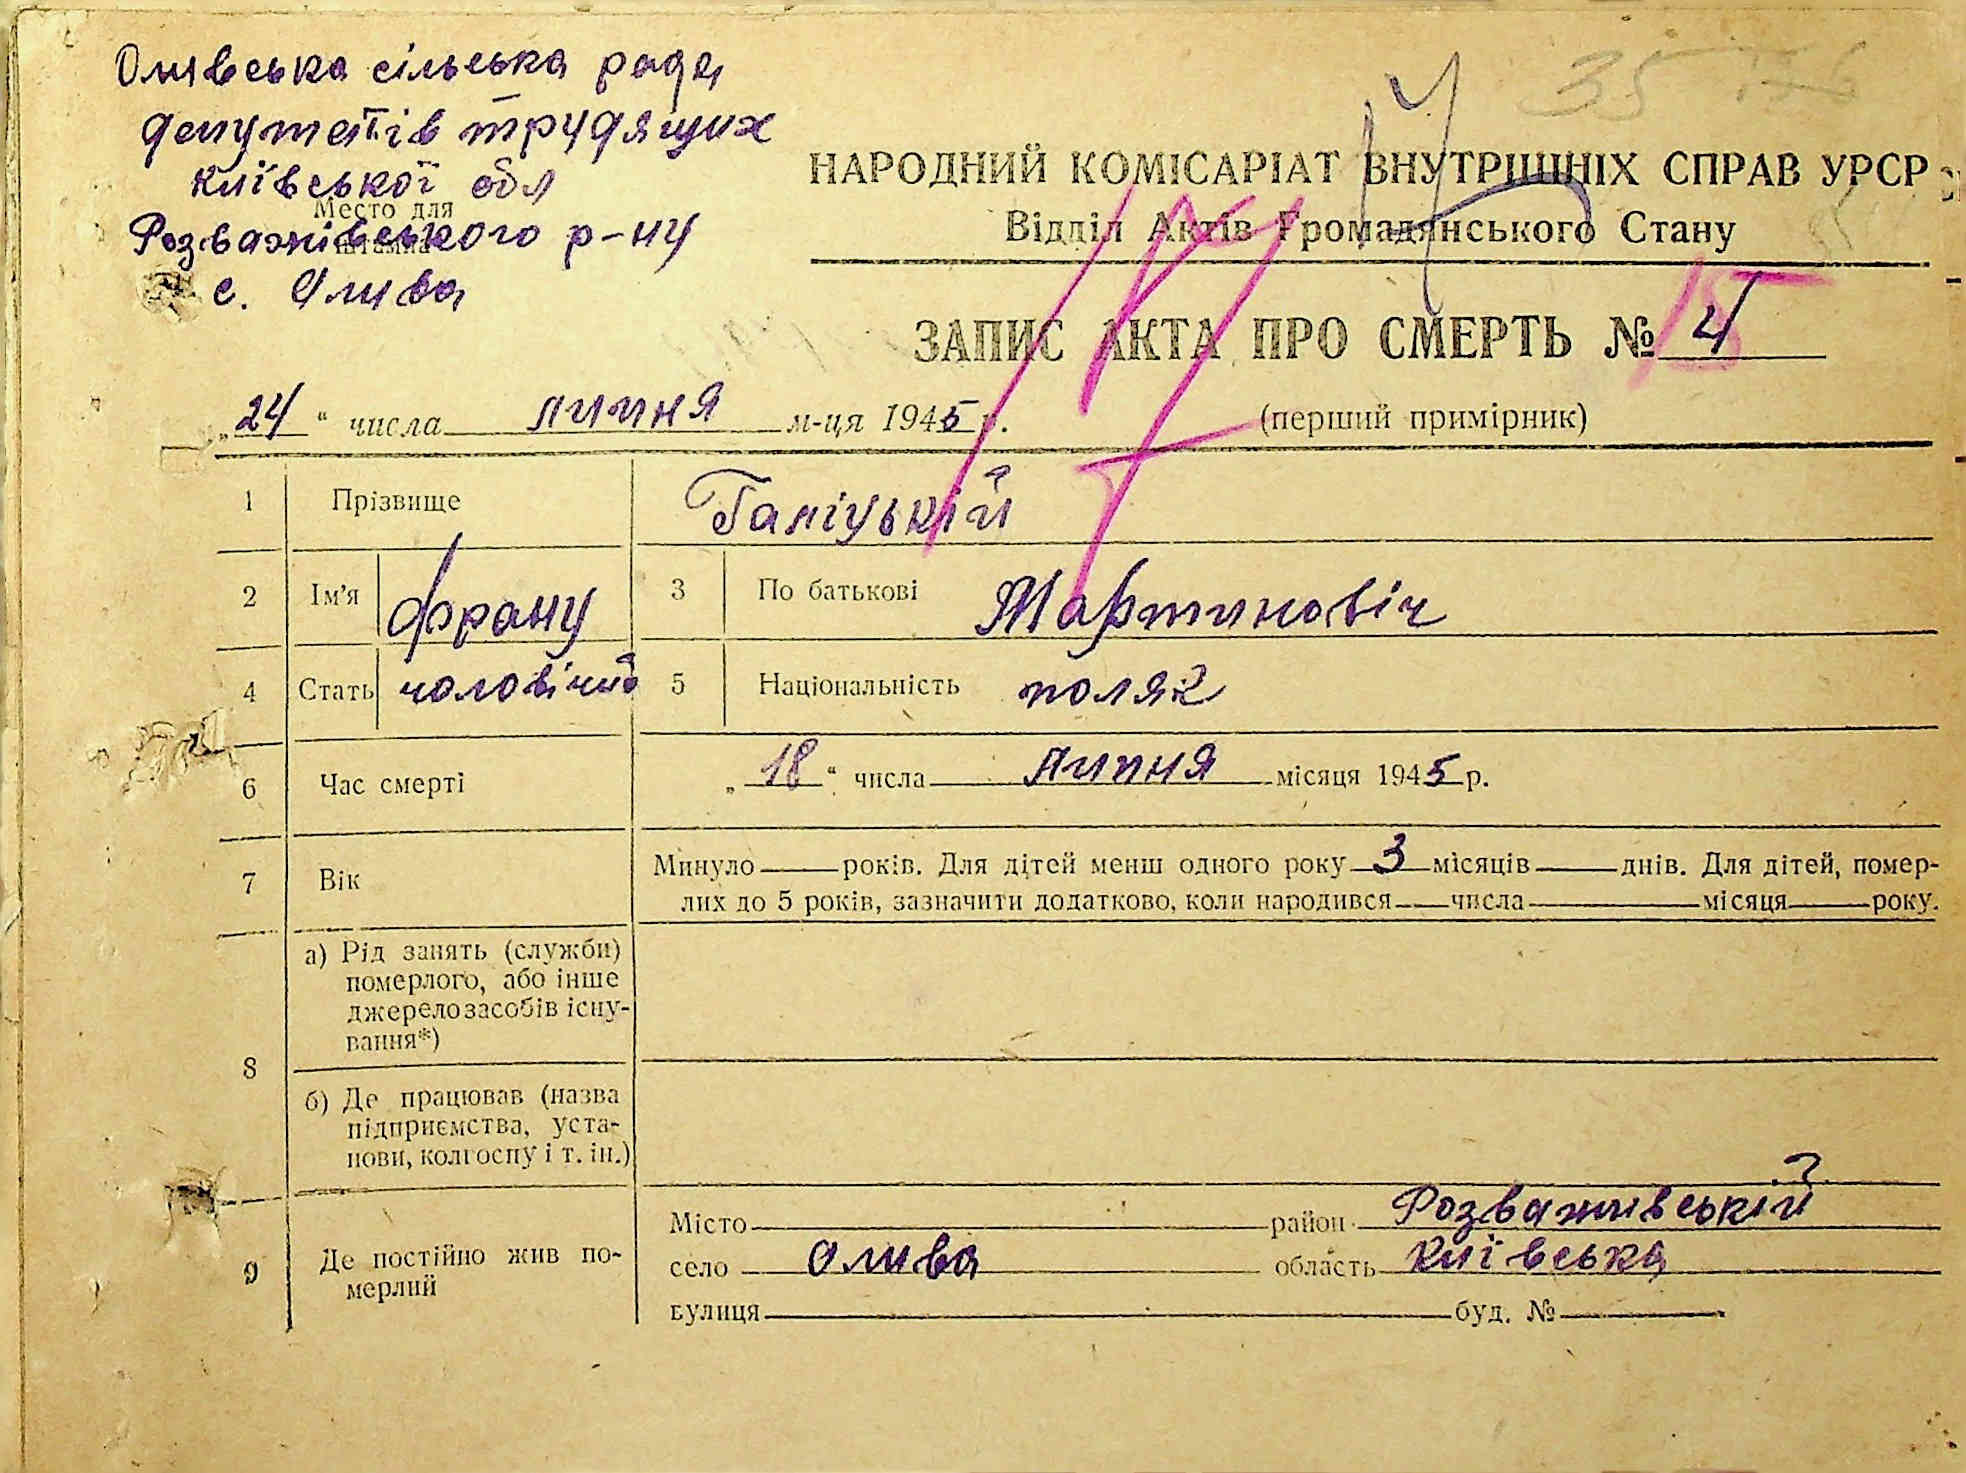 Оливська сільська рада
депутатів трудящих
київської обл
Место для
Розважівського р-ну
штампа
с. Олива
35
НАРОДНИЙ КОМІСАРІАТ ВНУТРІШНІХ СПРАВ УРСР
Відділ Актів Громадянського Стану
ЗАПИС АКТА ПРО СМЕРТЬ № 4
„24“ числа липня м-ця 1945 р. (перший примірник)
1 Прізвище Галіцькій
2 Ім'я Франц 3 По батькові Мартиновіч
4 Стать чоловічий 5 Національність поляк
6 Час смерті „18“ числа липня місяця 1945 р.
7 Вік Минуло років. Для дітей менш одного року 3 місяців днів. Для дітей, помер-
лих до 5 років, зазначити додатково, коли народився числа місяця року.
8 а) Рід занять (служби)
померлого, або інше
джерело засобів існу-
вання*)
б) Де працював (назва
підприємства, уста-
нови, колгоспу і т. ін.)
9 Де постійно жив по-
мерлий
Місто район Розваживській
село Олива область київська
вулиця буд. №